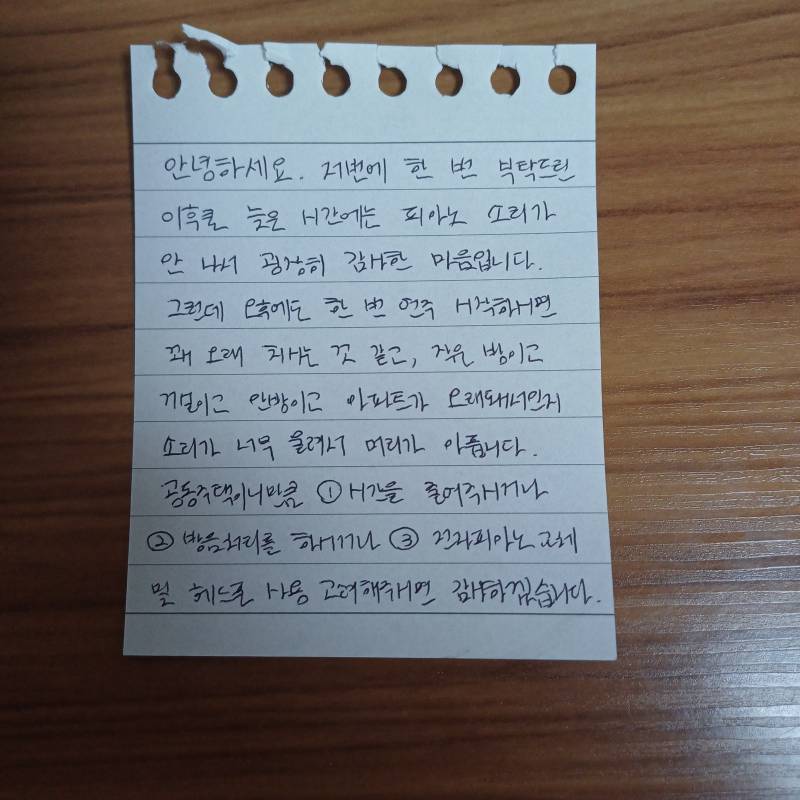 안녕하세요. 저번에 한 번 부탁드린
이후로 늦은 시간에는 피아노 소리가
안 나서 굉장히 감사한 마음입니다.
그런데 오후에도 한 번 연주 시작하시면
꽤 오래 치시는 것 같고, 작은 방이고
거실이고 안방이고 아파트가 오래돼서인지
소리가 너무 울려서 머리가 아픕니다.
공동주택이니만큼 ① 시간을 줄여주시거나
② 방음처리를 하시거나 ③ 전자피아노 교체
및 헤드폰 사용 고려해주시면 감사하겠습니다.